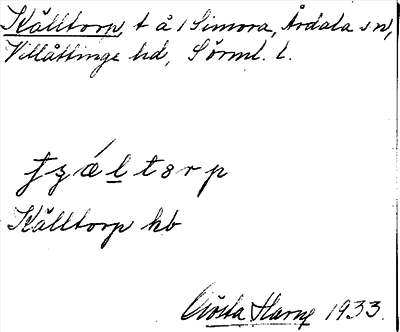 Källtorp, t å i Simora, Årdala sn,
Villåttinge hd, Sörml. l.
tȝǽltorp
Källtorp kb
Gösta 1933.